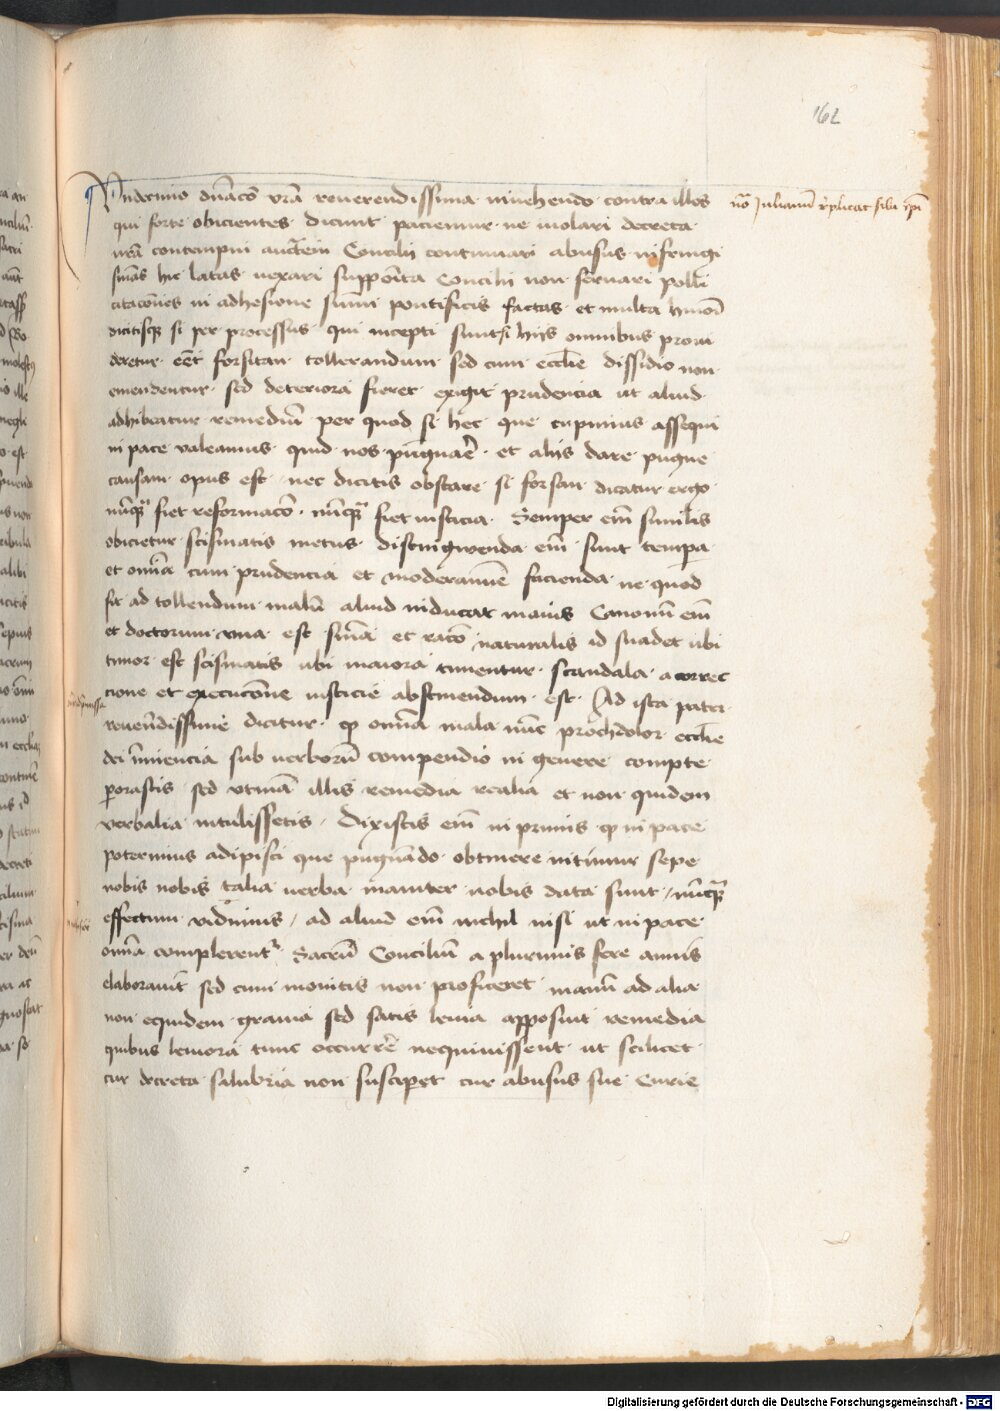 162
Undecimo dnãcõ vrã reuerendissima inuehendo contra illos
qui forte obicientes dicunt paciemur ne uiolari decreta
nrã contempni auctẽm Concilij continuari abusus infringi
sñias hic latas uexari supposita Concilij non seruari poll
citacoẽs in adhesione summi pontificis factas et multa hmoĩ
dicitisque si per processus qui incepti sunt si hijs omnibus proui
deretur eẽt forsitan tollerandum sed cum ecclẽe dissidio non
emendentur sed deteriora fieret exigit prudencia ut aliud
adhibeatur remediũ per quod si hec que cupimus assequi
in pace valeamus quid nos pugnarẽ et alijs dare pugne
causam opus est nec dicitis obstare si forsan dicatur ergo
nũquã fiet reformacõ nũquã fiet iusticia Semper eñ similis
obicietur scismatis metus distingwenda eñ sunt tempa
et omñia cum prudencia et moderamiẽ facienda ne quod
fit ad tollendum malũ aliud inducat maius Canonũ eñ
et doctorum vna est sñia et racõ naturalis id suadet ubi
timor est scismatis ubi maiora timentur scandala a correc
cione et execucione iusticie abstinendum est Ad ista pater
reuerẽdissime dicitur qp omñia mala nũc prochdolor ecclẽe
dei imminencia sub uerborũ compendio in genere compte
perorastis sed vtinã illis remedia realia et non quidem
verbalia intulissetis / Dixistis eñ in primis qp in pace
poterimus adipisci que pugnãdo obtinere nitimur sepe
nobis nobis talia uerba inaniter nobis data sunt / nũquã
effectum vidimus / ad aliud eñ nichil nisi ut in pace
omñia complerent Sacrũ Conciliũ a plurimis fere annis
elaborauit sed cum monitis non proficeret manũ ad alia
non equidem grauia sed satis leuia apposuit remedia
quibus leuiora tunc occurrẽ nequiuissent ut scilicet
cur decreta salubria non susciperet cur abusus sue Curie
nõ Julianũ replicat sibi ipi
Digitalisierung gefördert durch die Deutsche Forschungsgemeinschaft - DFG